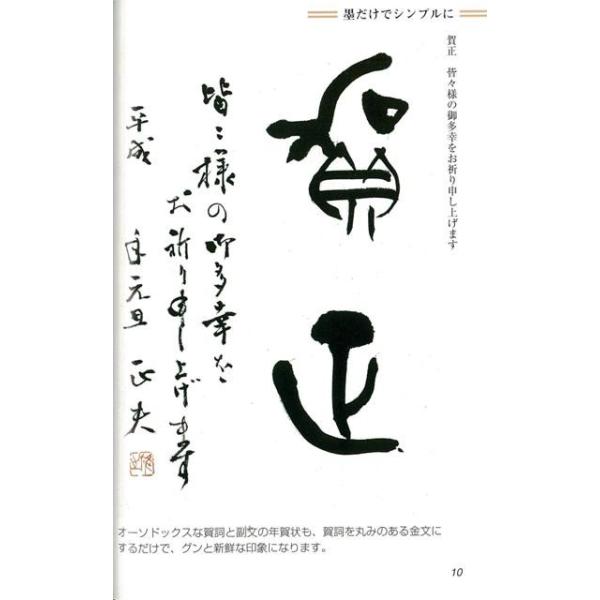 墨だけでシンプルに
賀正　皆々様の御多幸をお祈り申し上げます
賀正
皆々様の御多幸を
お祈り申し上げます
平成　年元旦　正夫
オーソドックスな賀詞と副文の年賀状も、賀詞を丸みのある金文に
するだけで、グンと新鮮な印象になります。
10